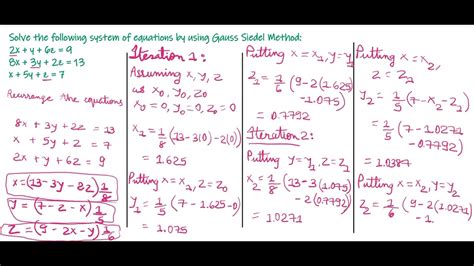 Solve the following system of equations by using Gauss Siedel Method:
2x + y + 6z = 9
8x + 3y + 2z = 13
x + 5y + z = 7
Rearrange the equations
8x + 3y + 2z = 13
x + 5y + z = 7
2x + y + 6z = 9
x = (13 - 3y - 2z) 1/8
y = (7 - z - x) 1/5
z = (9 - 2x - y) 1/6
Iteration 1:
Assuming x, y, z
as x0, y0, z0
x0 = 0, y0 = 0, z0 = 0
x1 = 1/8 (13 - 3(0) - 2(0))
= 1.625
Putting x = x1, z = z0
y1 = 1/5 (7 - 1.625 - 0)
= 1.075
Putting x = x1, y = y1
z1 = 1/6 (9 - 2(1.625)
- 1.075)
= 0.7792
Iteration 2:
Putting y = y1, z = z1
x2 = 1/8 (13 - 3(1.075)
- 2(0.7792)
= 1.0271
Putting x = x2,
z = z1
y2 = 1/5 (7 - x2 - z1)
= 1/5 (7 - 1.0271
- 0.7792)
= 1.0387
Putting x = x2, y = y2
z2 = 1/6 (9 - 2(1.0271)
- 1.